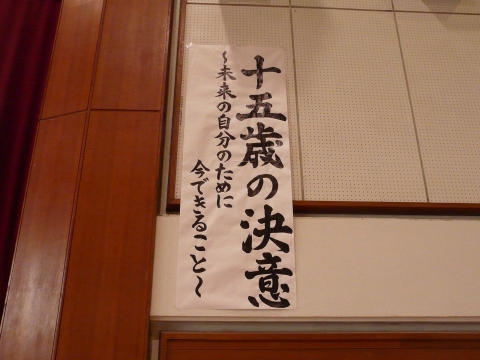 十五歳の決意
~未来の自分のために
今できること~